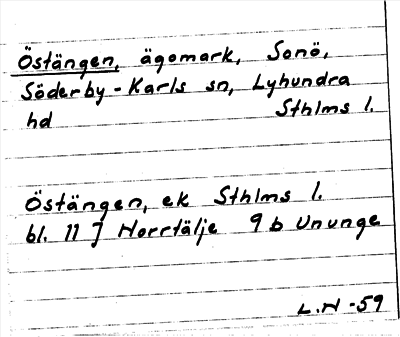 Östängen, ägomark, Sonö,
Söderby-Karls sn, Lyhundra
hd Sthlms l.
Östängen, ek Sthlms l.
bl. 11 J Norrtälje 9 b Ununge
L.N -59